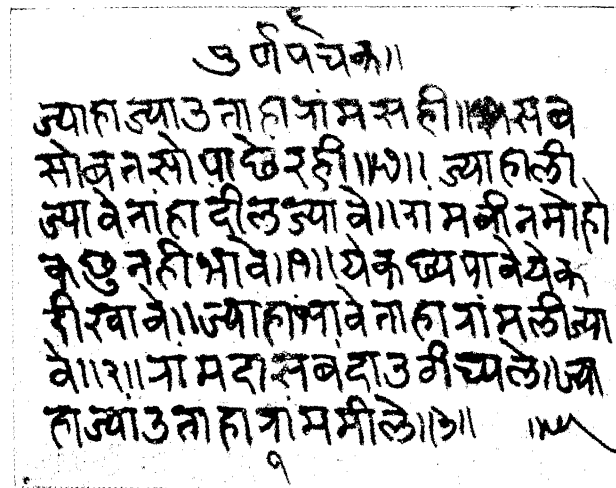 पुर्णपंचक॥
ज्याहाज्याउताहारांमसही॥ सब
सोबतसोपाछेरही॥धृ॥ ज्याहाली
ज्यावेतांहादीलज्यावे॥रांमबीनमोहो
कछुनहीभावे॥१॥येकछ्यपावेयेक
दीखावे॥ज्याहाभावेताहारांमलीज्या
वे॥२॥रांमदासबंदाउठीच्यले॥ज्या
हाज्यांउताहारांममीले॥३॥
१